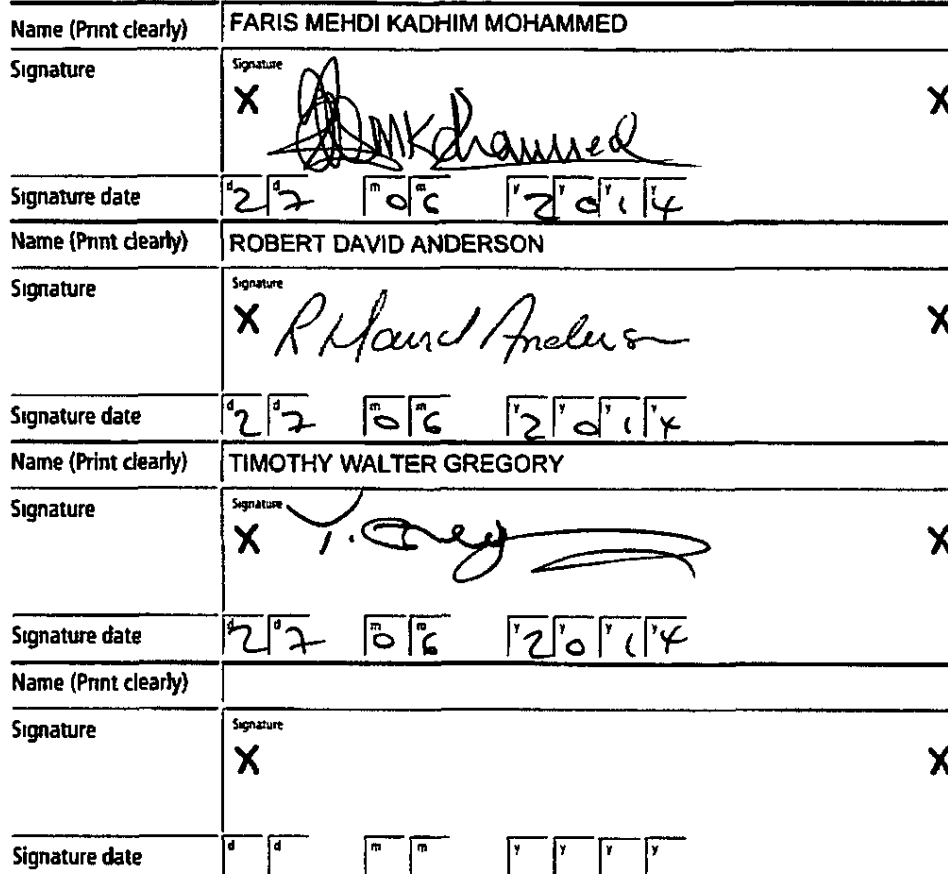 Name (Print clearly) FARIS MEHDI KADHIM MOHAMMED
Signature Signature
X MKohammed X
Signature date d 2 d 7 m 0 m 6 y 2 y 0 y 1 y 4
Name (Print clearly) ROBERT DAVID ANDERSON
Signature Signature
X R David Anderson X
Signature date d 2 d 7 m 0 m 6 y 2 y 0 y 1 y 4
Name (Print clearly) TIMOTHY WALTER GREGORY
Signature Signature
X T. Greg X
Signature date d 2 d 7 m 0 m 6 y 2 y 0 y 1 y 4
Name (Print clearly)
Signature Signature
X X
Signature date d d m m y y y y